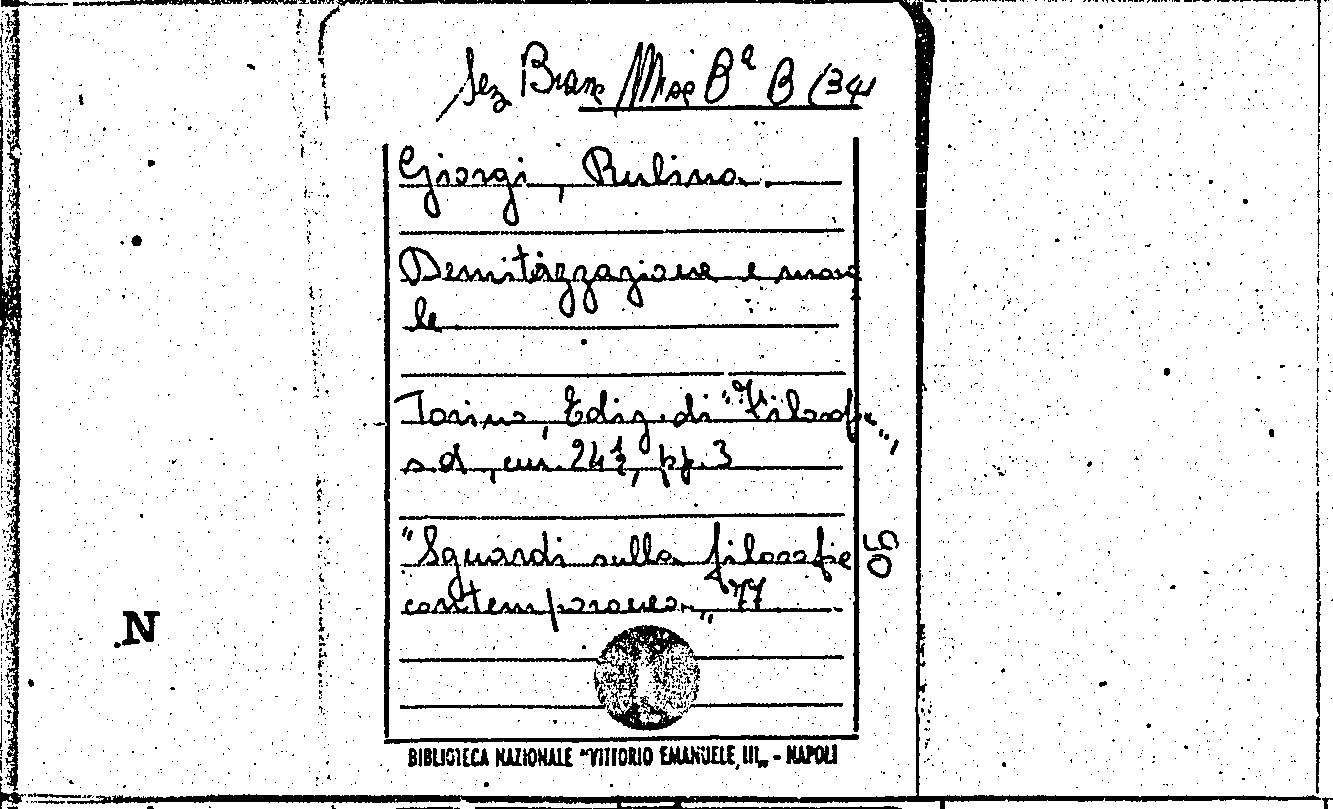 Sez Branc Misc Bª B (34)
Giorgi, Rubina.
Demitizzazione e mora
le
Torino, Ediz. di "Filosofia",
s.d., cm. 24½, pp. 3
"Sguardi sulla filosofia
contemporanea„, 77
90
N
BIBLIOTECA NAZIONALE "VITTORIO EMANUELE, III„ - NAPOLI